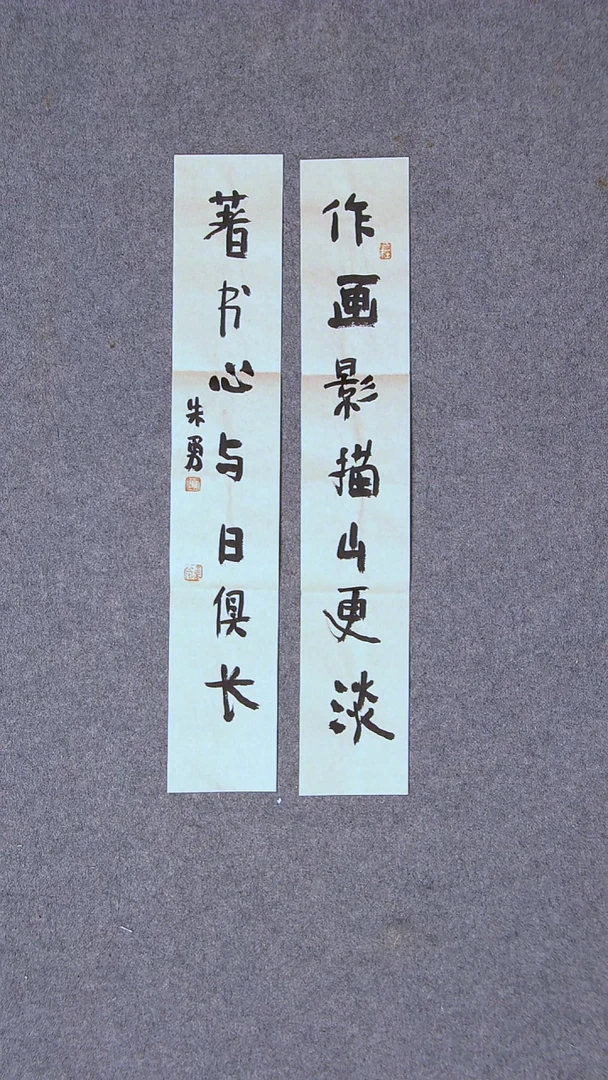 作画影描山更淡
著书心与日俱长
朱勇